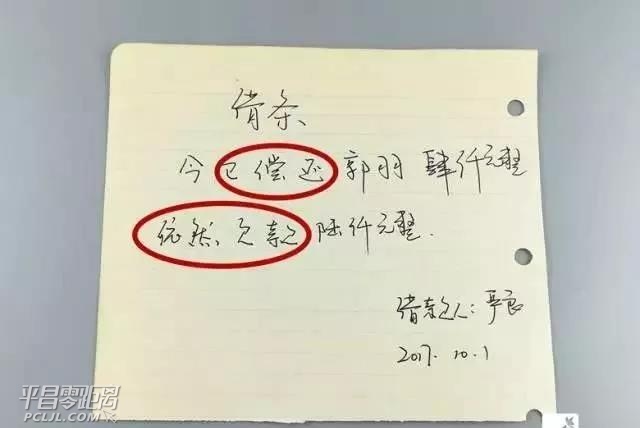 借条
今已偿还郭羽肆仟元整
依然欠款陆仟元整.
借款人:严良
2017.10.1
平昌零距离
PCLJL.COM